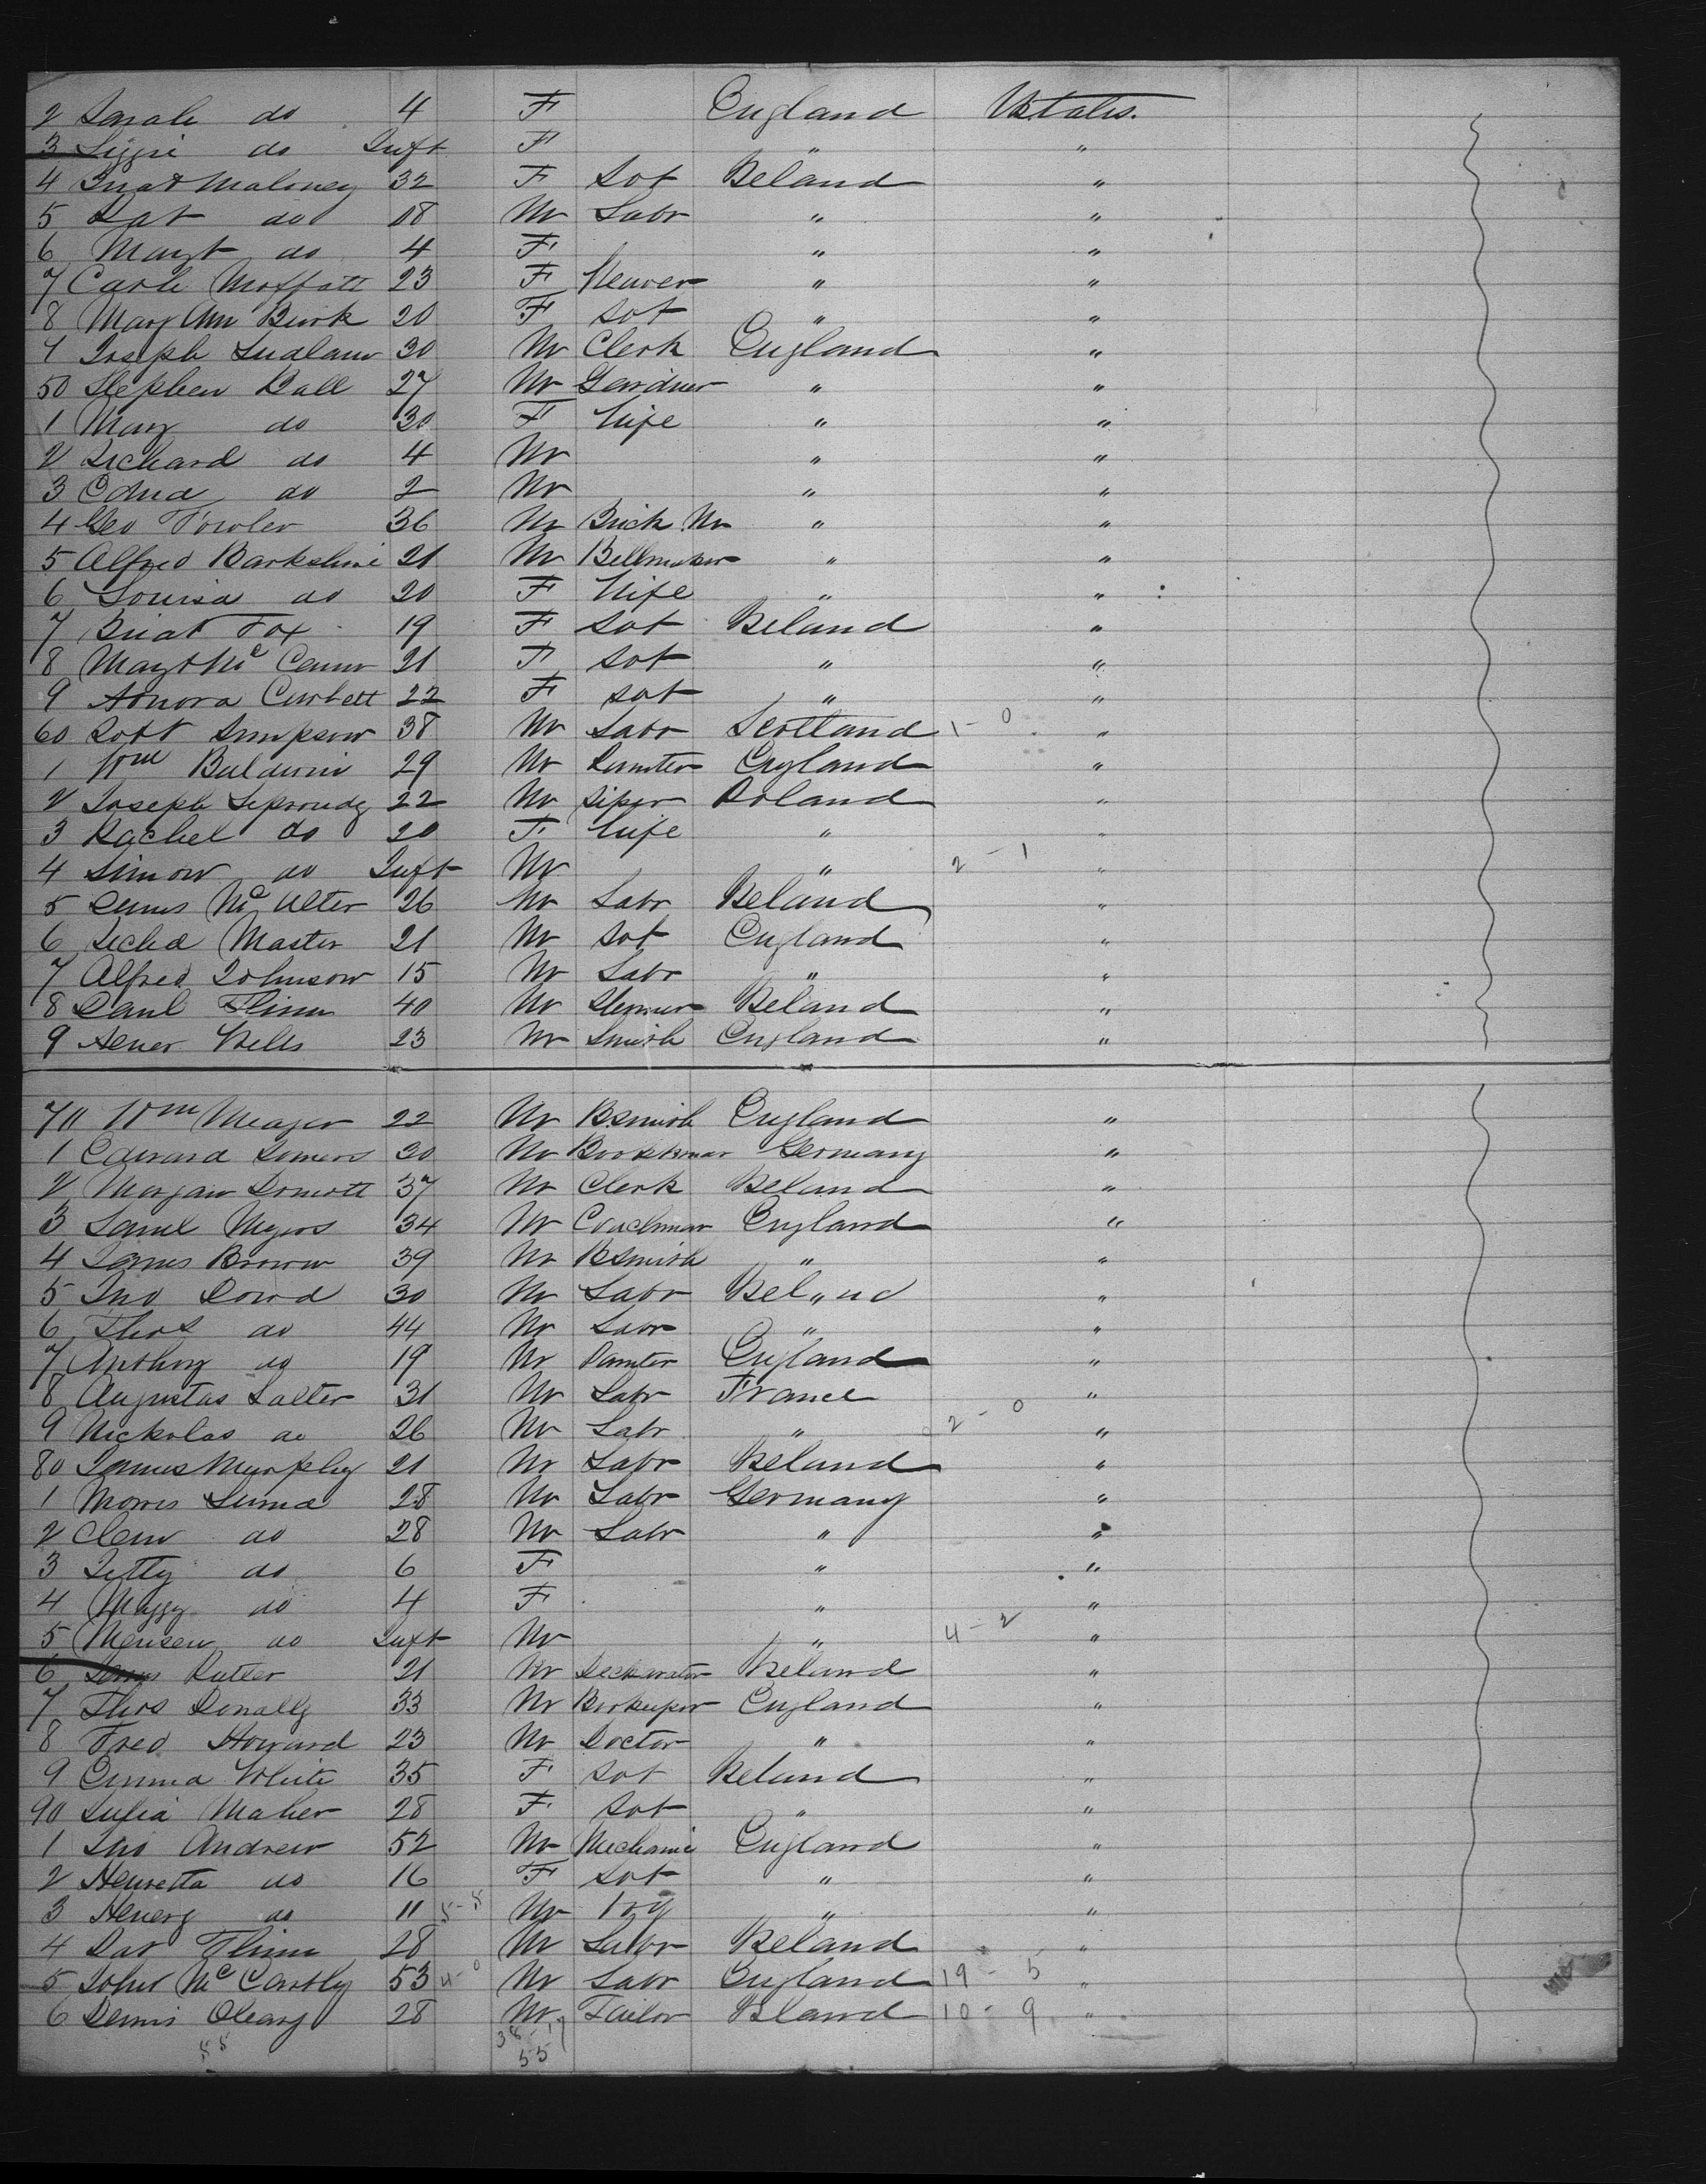 2 Sarah do 4 F England Ustates.
3 Lizzie do Inft F " "
4 Bridt Maloney 32 F Spt Ireland "
5 Pat do 18 M Labr " "
6 Margt do 4 F " "
7 Cath Moffatt 23 F Weaver " "
8 Mary Ann Burk 20 F Spt " "
9 Joseph Ludlam 30 M Clerk England "
50 Stephen Ball 27 M Gardner " "
1 Mary do 30 F Wife " "
2 Richard do 4 M " "
3 Edwd do 2 M " "
4 Geo Fowler 36 M Brick M " "
5 Alfred Barkshire 21 M Bellmaker " "
6 Louisa do 20 F Wife " "
7 Bridt Fox 19 F Spt Ireland "
8 Margt Mc Cann 21 F Spt " "
9 Honora Corbett 22 F Spt " "
60 Robt Simpson 38 M Labr Scotland 1 - 0 "
1 Wm Baldwin 29 M Painter England "
2 Joseph 22 M Poland "
3 Rachel do 20 F Wife " "
4 Simon do Inft M " 2 - 1 "
5 Denis Mc Alter 26 M Labr Ireland "
6 Richd Master 21 M Spt England "
7 Alfred Johnson 15 M Labr " "
8 Danl Flinn 40 M Ireland "
9 Wells 23 M Smith England "
70 Wm Meager 22 M BSmith England "
1 Edward Somers 30 M Germany "
2 Morgan Dermott 37 M Clerk Ireland "
3 Saml Myers 34 M Coachman England "
4 James Brown 39 M BSmith " "
5 Jno Dowd 30 M Labr Ireland "
6 Thos do 44 M Labr " "
7 Anthony do 19 M Painter England "
8 Augustas Salter 31 M Labr France "
9 Nickolas do 26 M Labr " 2 - 0 "
80 James Murphy 21 M Labr Ireland "
1 Morris 28 M Labr Germany "
2 Clem do 28 M Labr " "
3 Letty do 6 F " "
4 Maggy do 4 F " "
5 do Inft M " 4 - 2 "
6 Butler 21 M Deckorator Ireland "
7 Thos Donally 33 M Bookeeper England "
8 Fred Howard 23 M Doctor " "
9 Emma White 35 F Spt Ireland "
90 Julia Maher 28 F Spt " "
1 Jno Andrew 52 M Mechanic England "
2 Henretta do 16 F Spt " "
3 Henery do 11 5 - 5 M Boy " "
4 Pat Flinn 28 M Labr Ireland "
5 John Mc Carthy 53 4 - 0 M Labr England 19 - 5 "
6 Denis Oleary 28 M Tailor Ireland 10 - 9 "
55 38 - 17
55